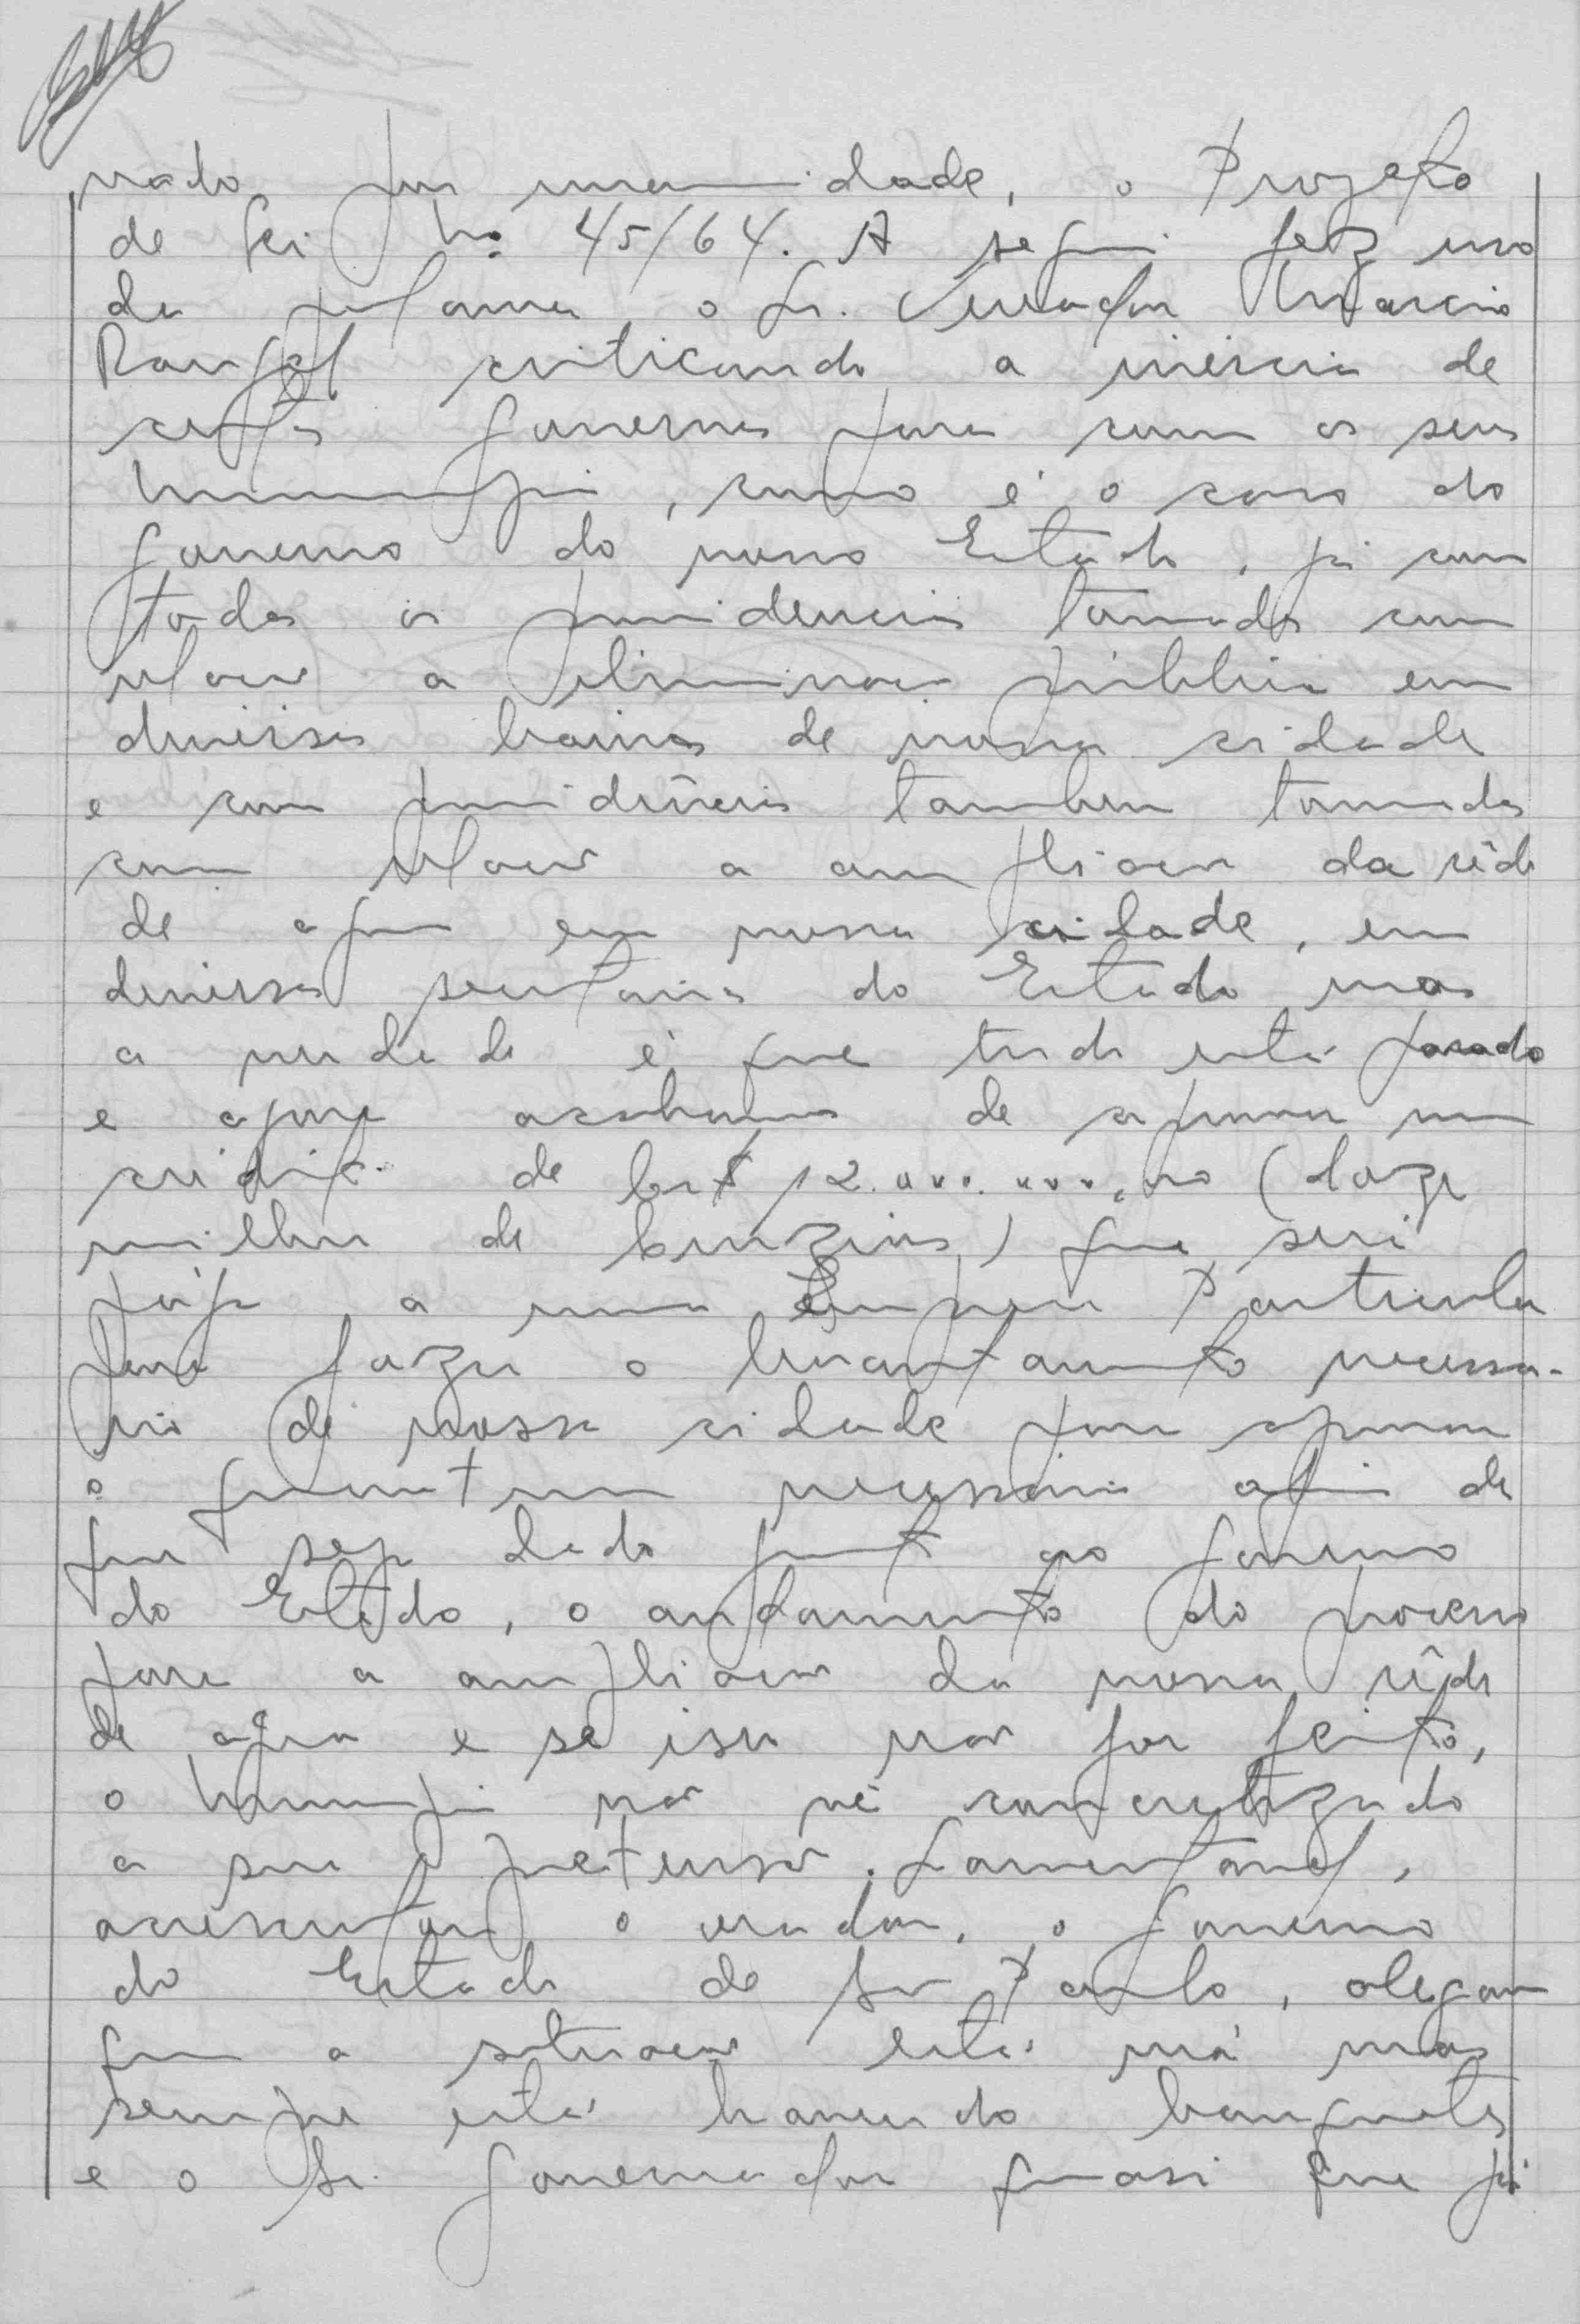 vado por unanimidade, o Projeto
de Lei Nº 45/64. A seguir fez uso
da palavra o Sr. Vereador Marcio
Rangel criticando a inércia de
certos governos para com os seus
Municipios, como é o caso do
governo do nosso Estado, já com
todas as providencias tomadas com
relação a iluminação pública em
diversos bairros de nossa cidade
e com providências tambem tomadas
com relação a ampliação da rêde
de agua em nossa cidade, em
diversas secretarias do Estado mas
a verdade é que tudo está parado
e agora acabamos de aprovar um
crédito de Cr$ 12.000.000,00 (doze
milhões de Cruzeiros) que será
pago a uma Empresa Particular
para fazer o levantamento necessa-
rio de nossa cidade para apurar
o quantum necessário afim de
que seja dado junto ao governo
do Estado, o andamento do processo
para a ampliação da nossa rêde
de agua e se isso não for feito,
o Municipio não vê concretizado
a sua pretensão. Lamentavel,
acrescentou o orador, o governo
do Estado de São Paulo, alegam
que a situação está má mas
sempre está havendo banquetes
e o Sr. Governador quasi que já